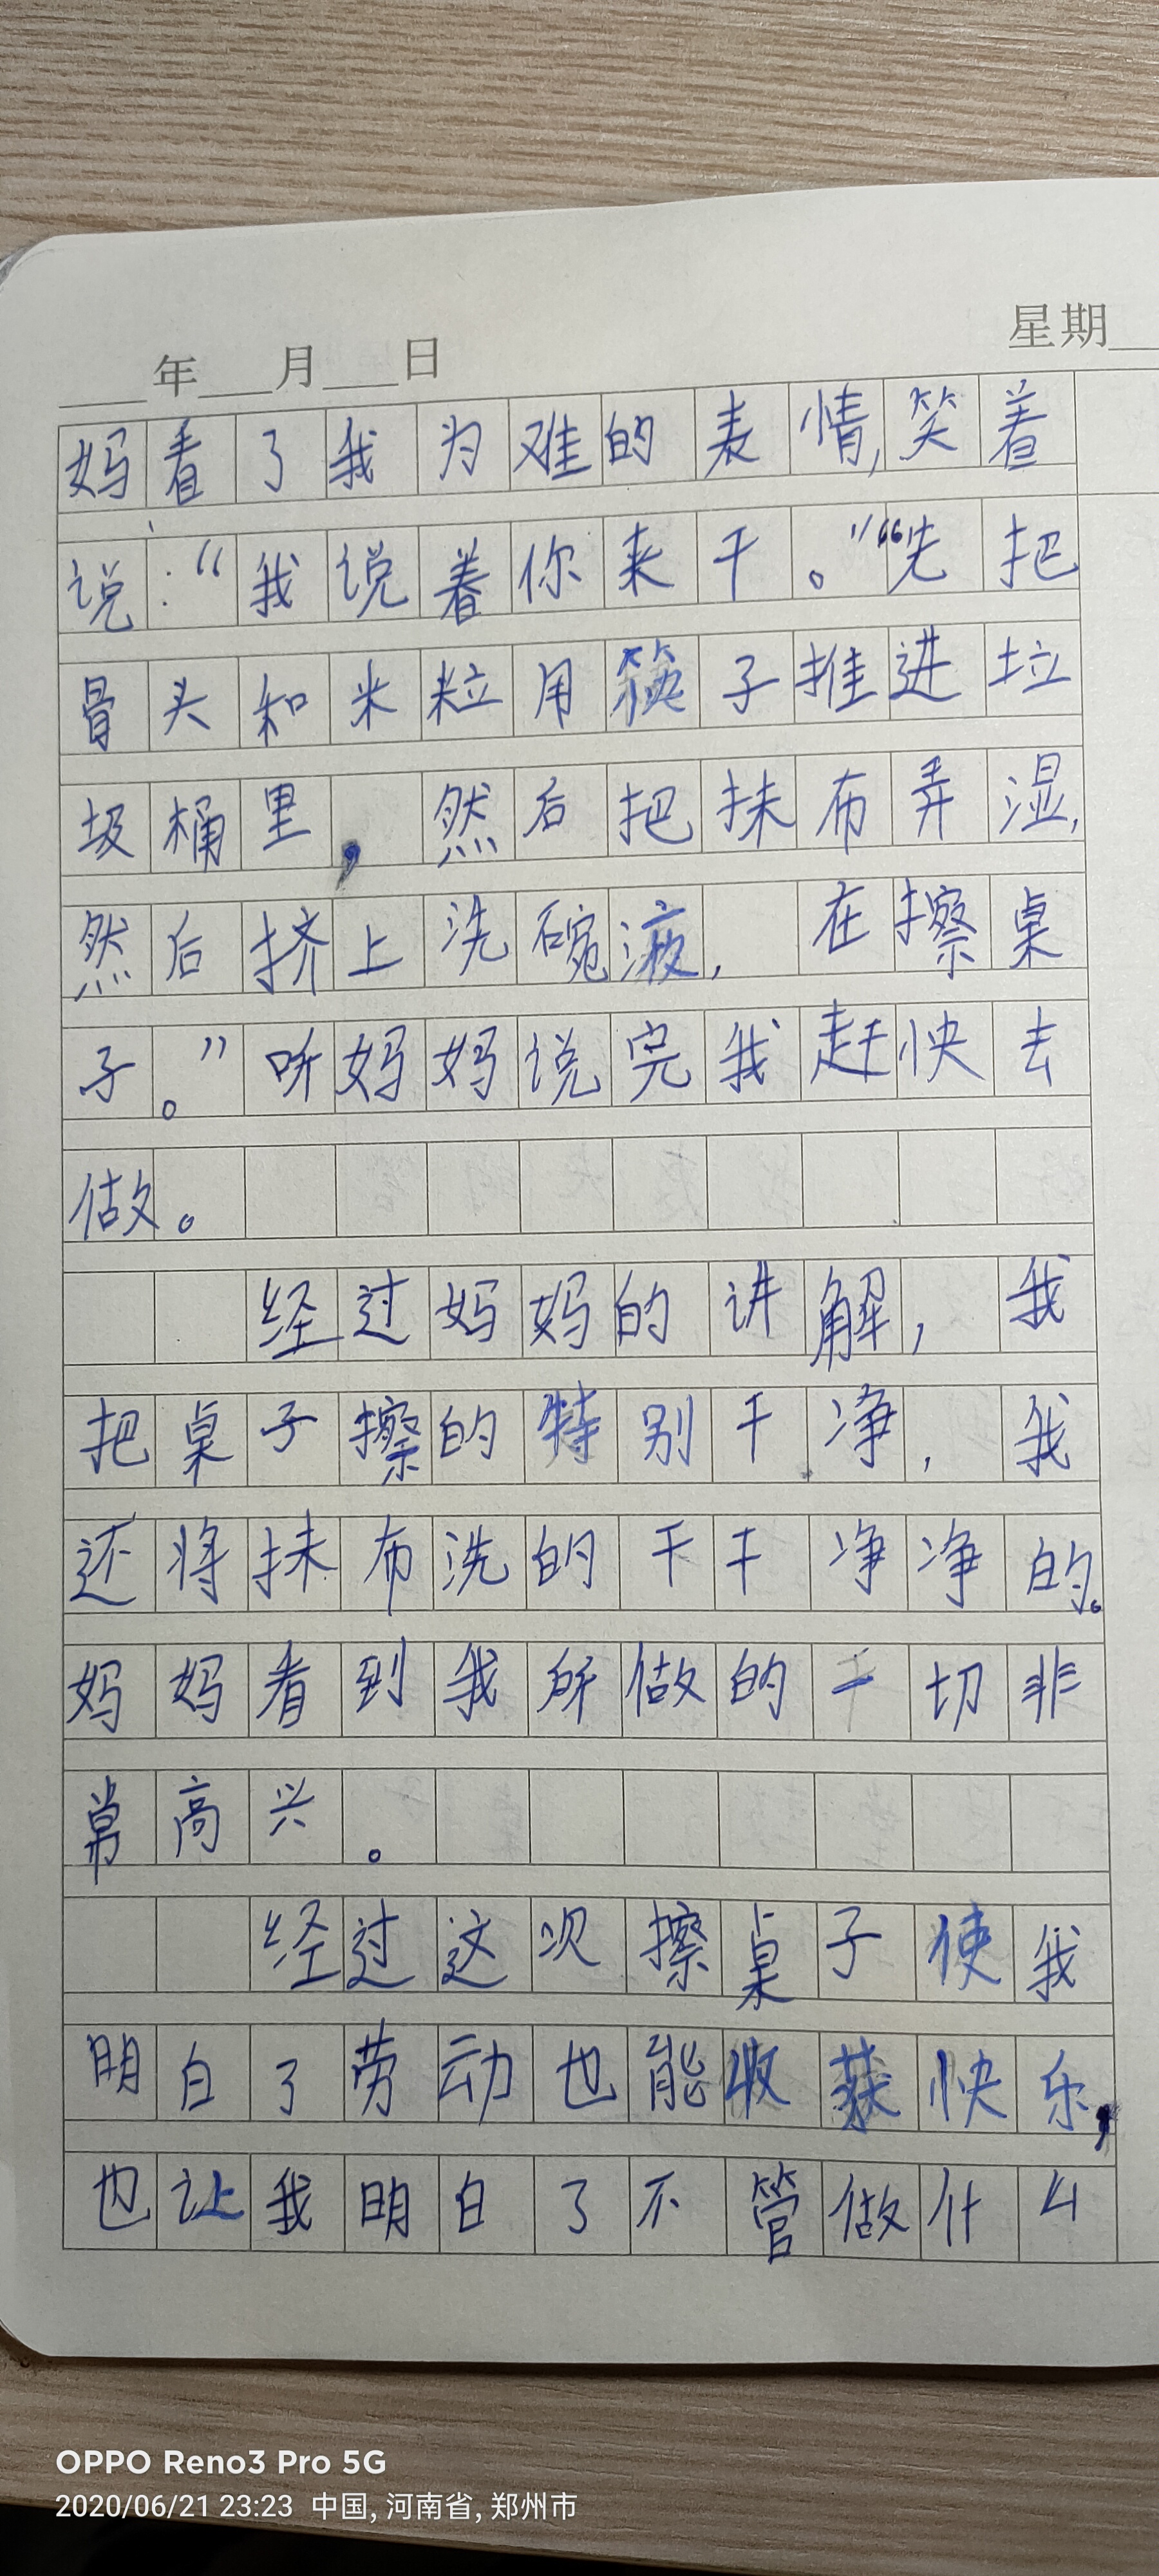 ____年___月___日 星期__
妈看了我为难的表情,笑着
说:“我说着你来干。”“先把
骨头和米粒用筷子推进垃
圾桶里,然后把抹布弄湿,
然后挤上洗碗液,在擦桌
子。”听妈妈说完我赶快去
做。
经过妈妈的讲解,我
把桌子擦的特别干净,我
还将抹布洗的干干净净的。
妈妈看到我所做的一切非
常高兴。
经过这次擦桌子使我
明白了劳动也能收获快乐,
也让我明白了不管做什么
OPPO Reno3 Pro 5G
2020/06/21 23:23 中国, 河南省, 郑州市